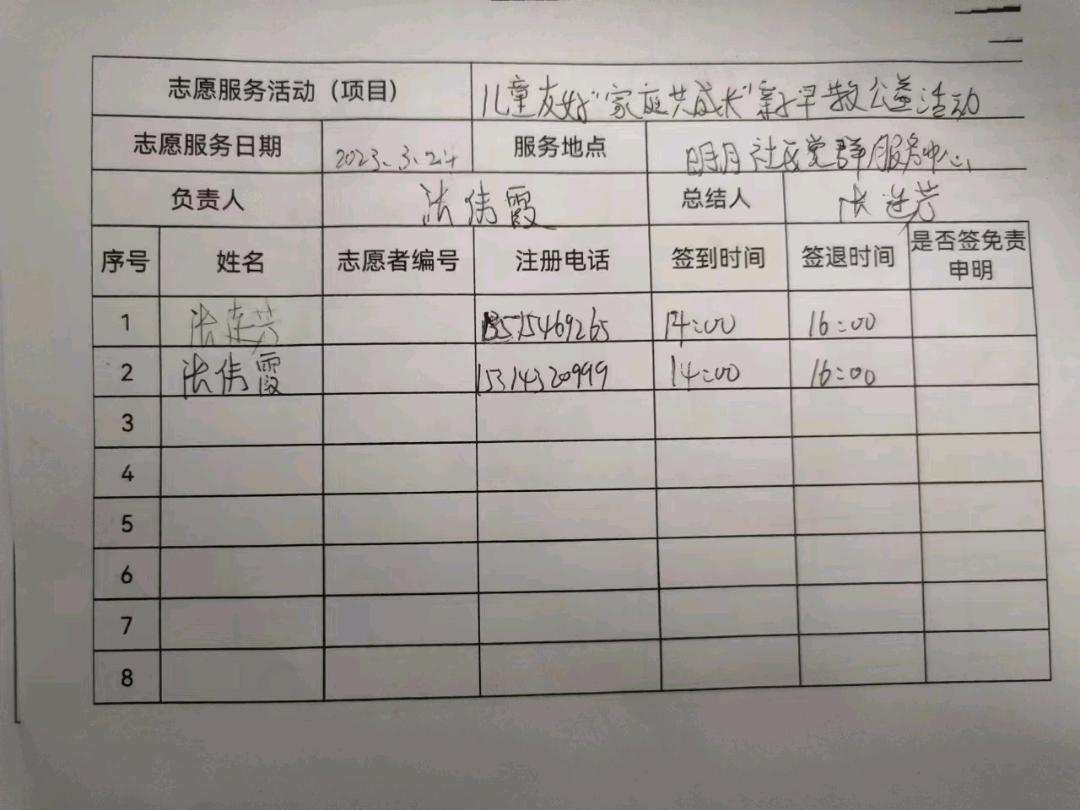 志愿服务活动（项目） 儿童友好“家庭共成长”亲子早教公益活动
志愿服务日期 2023.3.24 服务地点 明月社区党群服务中心
负责人 张伟霞 总结人 张莲芳
序号 姓名 志愿者编号 注册电话 签到时间 签退时间 是否签免责申明
1 张莲芳 13515469265 14:00 16:00
2 张伟霞 15314320999 14:00 16:00
3
4
5
6
7
8